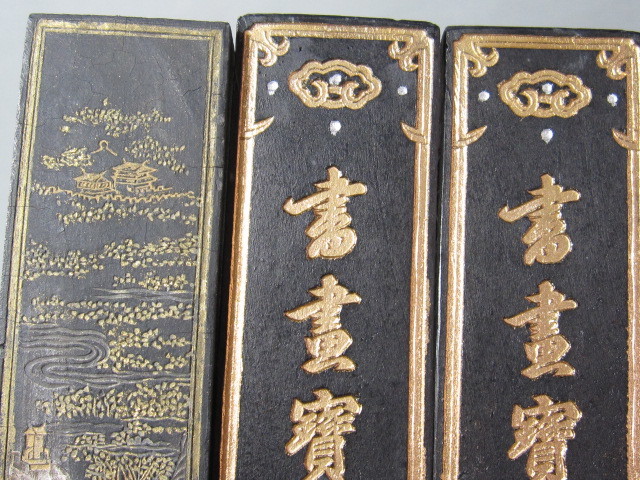 書畫寶
書畫寶